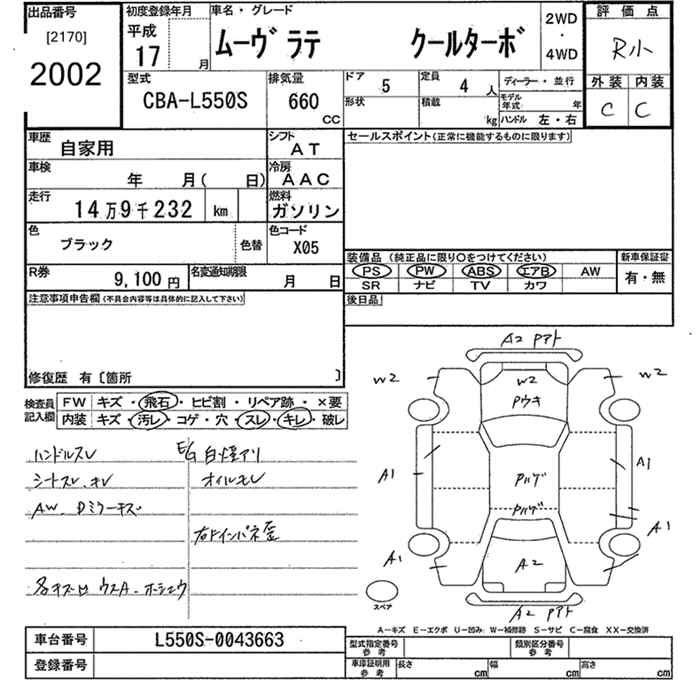 出品番号
[2170]
2002
初度登録年月
平成
17 月
車名・グレード
ムーヴラテ クールターボ
2WD
・
4WD
評価点
R小
外装 内装
C C
型式
CBA-L550S
排気量
660
CC
ドア
5
定員
4 人
形状
積載
kg
ディーラー・並行
モデル年式 年
ハンドル 左・右
車歴
自家用
シフト
AT
車検
年 月( 日)
冷房
AAC
走行
14万9千232 km
燃料
ガソリン
色
ブラック
色替
色コード
X05
R券
9,100 円
名変通知期限
月 日
セールスポイント(正常に機能するものに限ります)
装備品 (純正品に限り○をつけてください)
PS PW ABS エアB AW
SR ナビ TV カワ
新車保証書
有・無
後日品
注意事項申告欄(不具合内容等は具体的に記入して下さい)
修復歴 有〔箇所 〕
検査員記入欄
FW キズ・飛石・ヒビ割・リペア跡・×要
内装 キズ・汚レ・コゲ・穴・スレ・キレ・破レ
ハンドルスレ
シートスレ、キレ
AW、Dミラーキズ
E/G 白煙アリ
オイルモレ
右ドインパネ歪
各キズ凹 ウスA・ホシュウ
A2 Pアト
W2
W2
W2
Pウキ
A1
A1
Pハゲ
Pハゲ
A1
A1
A2
A2 Pアト
スペア
A―キズ E―エクボ U―凹み W―補修跡 S―サビ C―腐食 XX―交換済
車台番号
L550S-0043663
登録番号
型式指定番号
参考
類別区分番号
参考
車庫証明用
参考
長さ cm 幅 cm 高さ cm